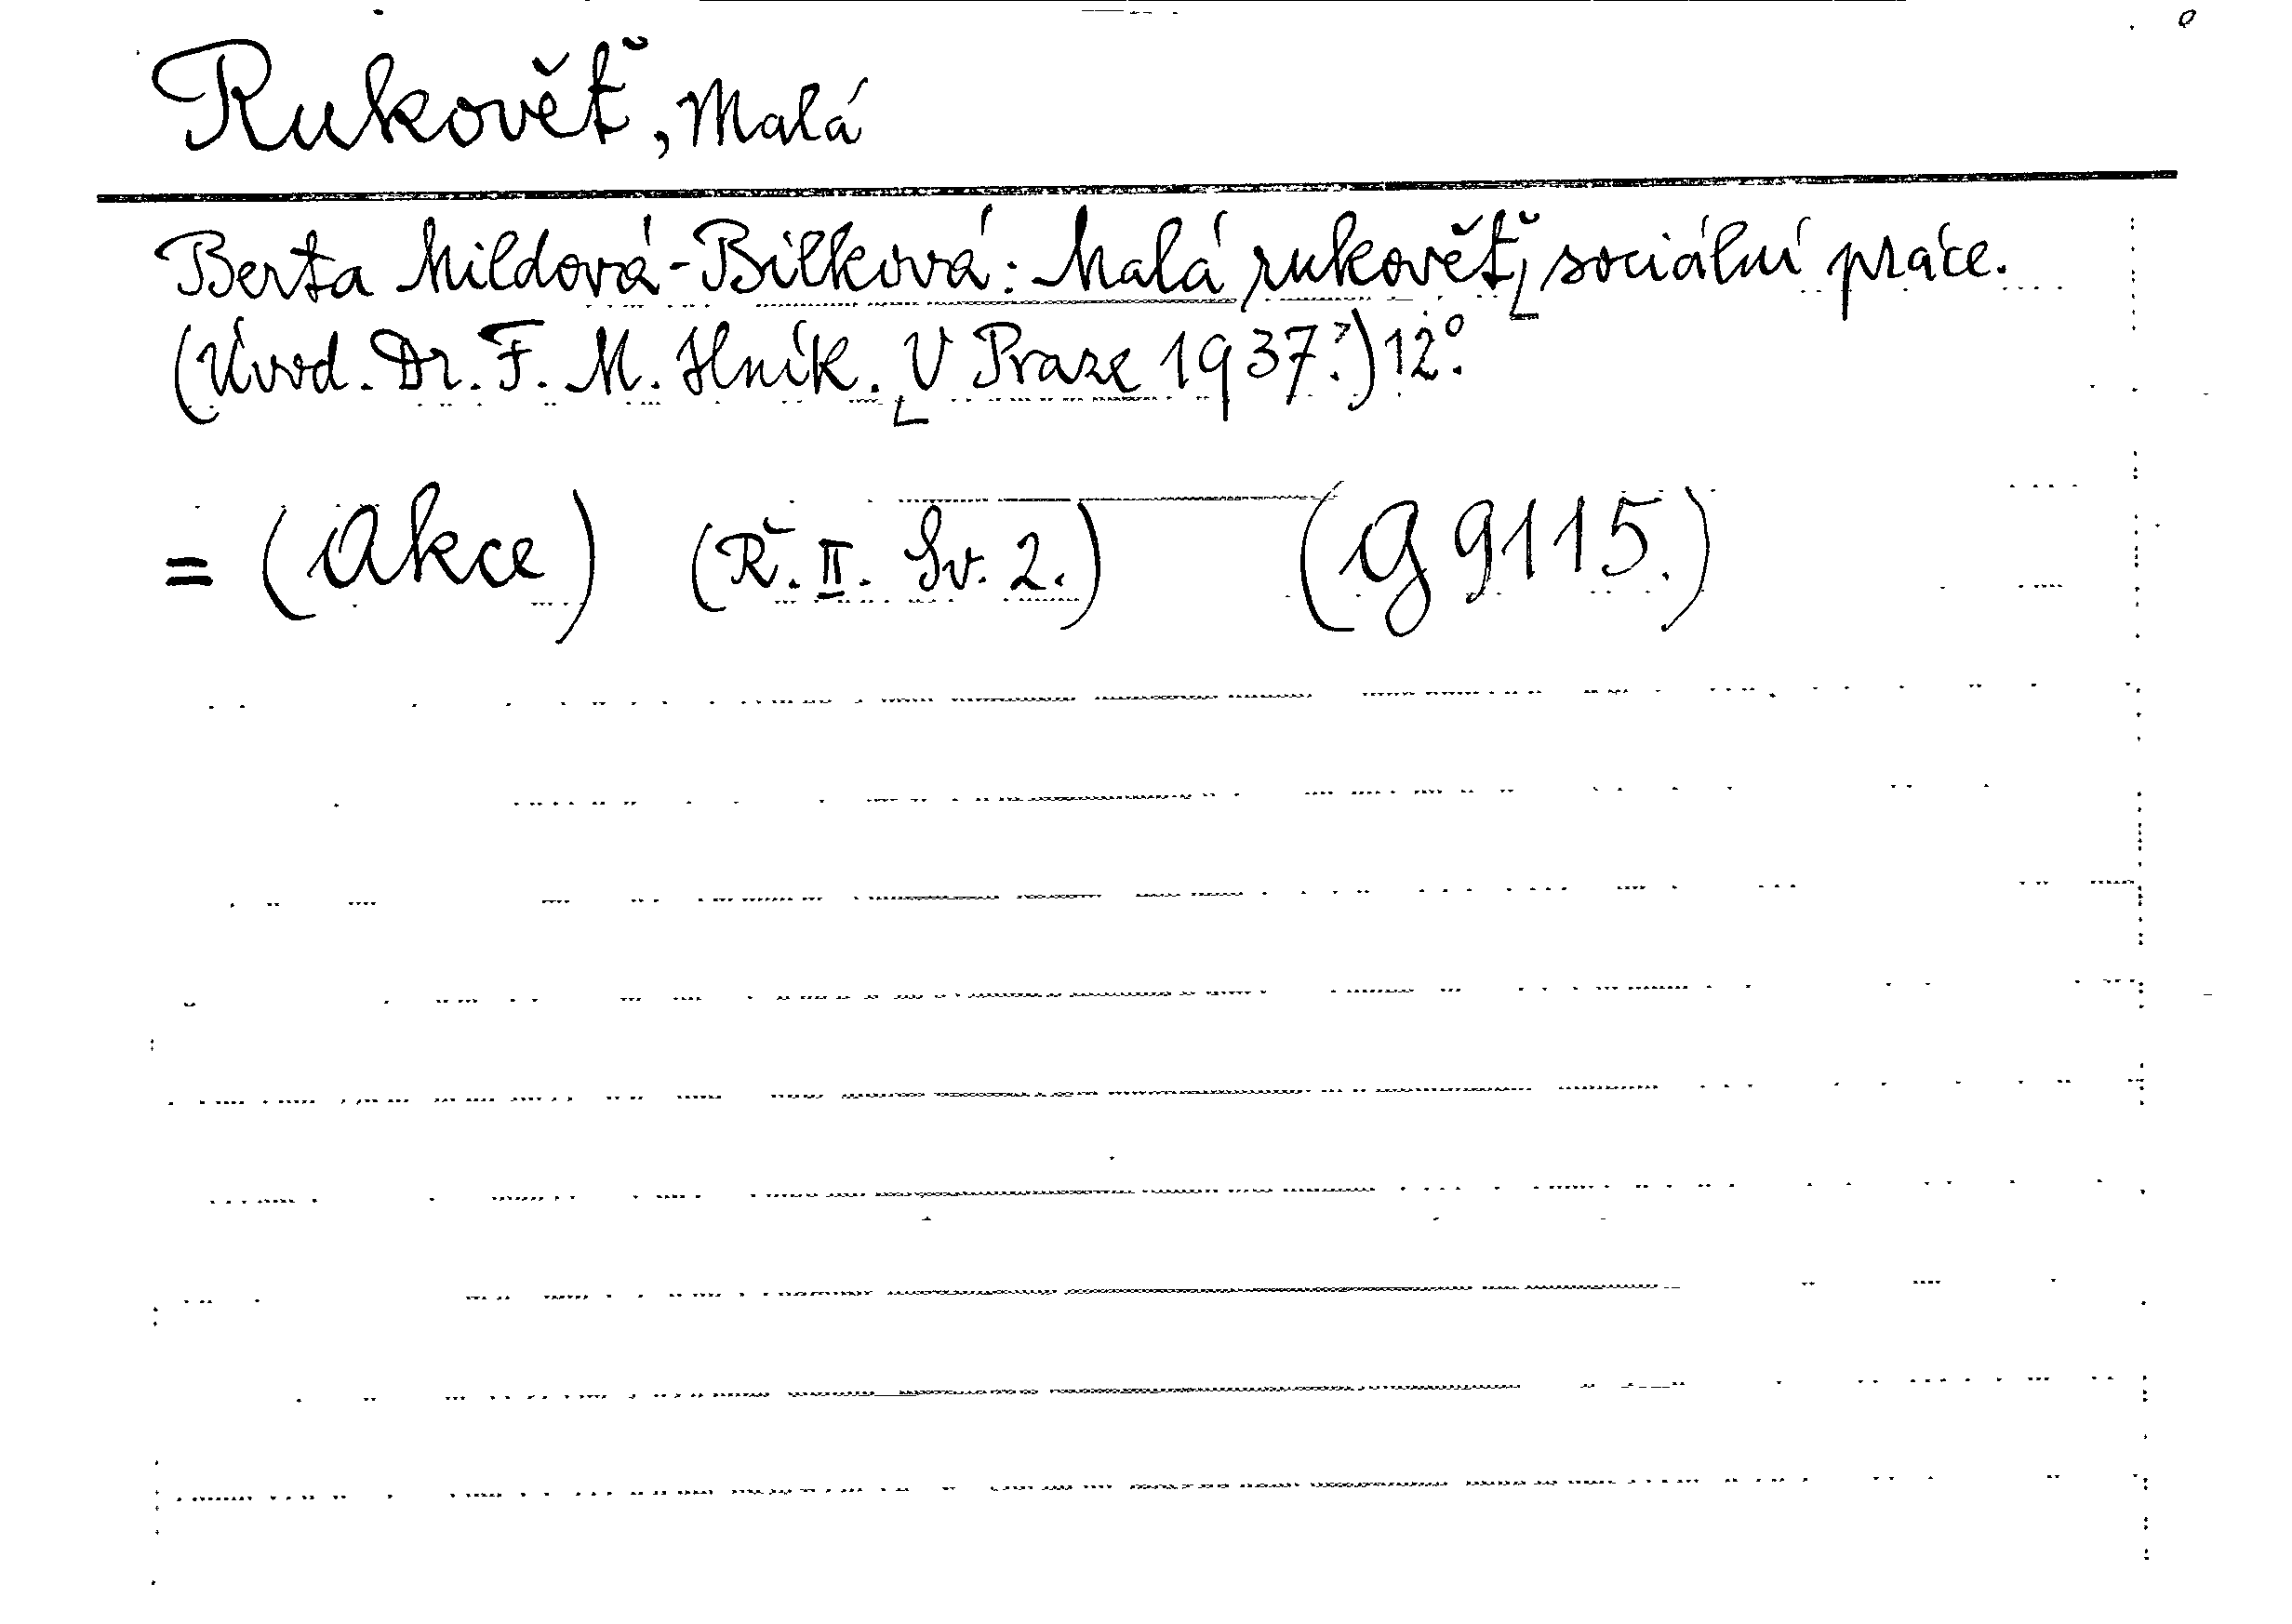 Rukověť, Malá
Berta Mildová-Bílková: Malá rukověť sociální práce.
(Úvod. Dr. F. M. Hník. V Praze 1937?.) 12°.
= (Akce) (Ř. II. Sv. 2.) (G 9115.)